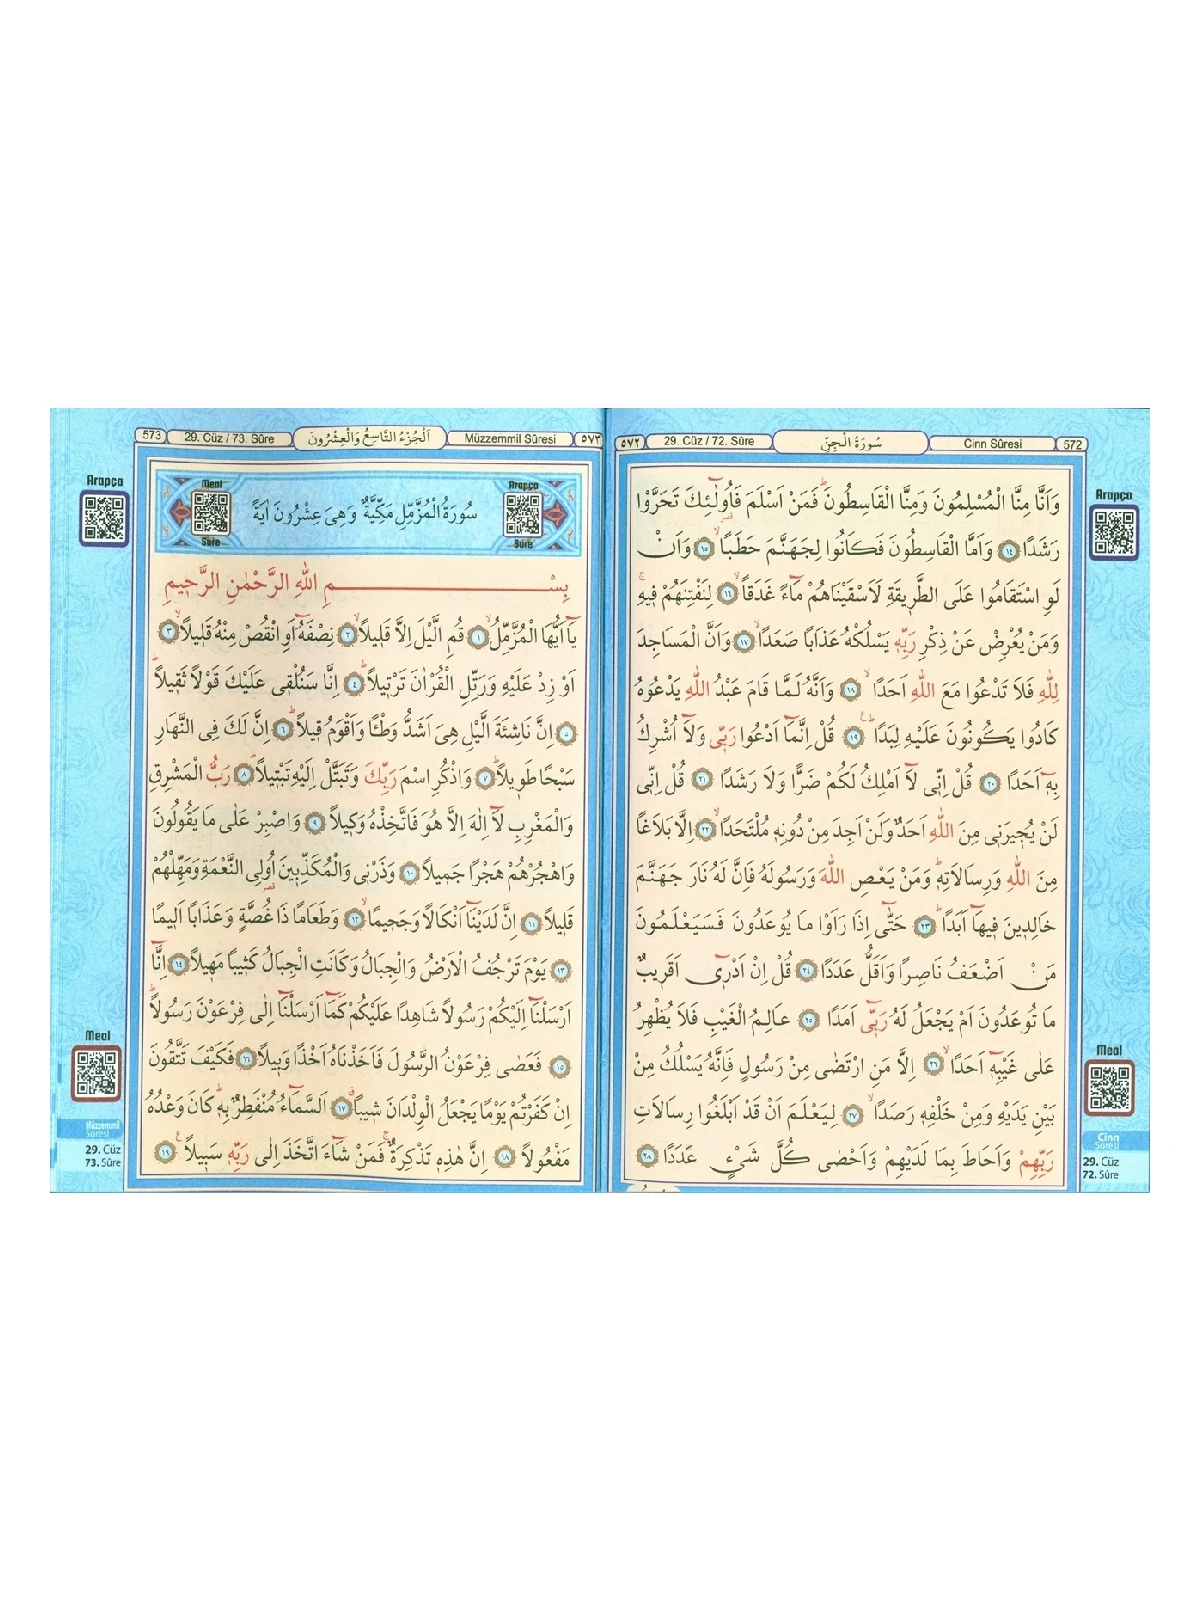 572
Cinn Sûresi
سُورَةُ الْجِنِّ
29. Cüz / 72. Sûre
٥٧٢
وَاَنَّا مِنَّا الْمُسْلِمُونَ وَمِنَّا الْقَاسِطُونَۜ فَمَنْ اَسْلَمَ فَاُو۬لٰٓئِكَ تَحَرَّوْا
رَشَدًا ﴿١٤﴾ وَاَمَّا الْقَاسِطُونَ فَكَانُوا لِجَهَنَّمَ حَطَبًاۙ ﴿١٥﴾ وَاَنْ
لَوِ اسْتَقَامُوا عَلَى الطَّر۪يقَةِ لَاَسْقَيْنَاهُمْ مَٓاءً غَدَقًاۙ ﴿١٦﴾ لِنَفْتِنَهُمْ ف۪يهِۜ
وَمَنْ يُعْرِضْ عَنْ ذِكْرِ رَبِّه۪ يَسْلُكْهُ عَذَابًا صَعَدًاۙ ﴿١٧﴾ وَاَنَّ الْمَسَاجِدَ
لِلّٰهِ فَلَا تَدْعُوا مَعَ اللّٰهِ اَحَدًاۙ ﴿١٨﴾ وَاَنَّهُ لَمَّا قَامَ عَبْدُ اللّٰهِ يَدْعُوهُ
كَادُوا يَكُونُونَ عَلَيْهِ لِبَدًاۜ ﴿١٩﴾ قُلْ اِنَّمَٓا اَدْعُوا رَبّ۪ي وَلَٓا اُشْرِكُ
بِه۪ٓ اَحَدًا ﴿٢٠﴾ قُلْ اِنّ۪ي لَٓا اَمْلِكُ لَكُمْ ضَرًّا وَلَا رَشَدًا ﴿٢١﴾ قُلْ اِنّ۪ي
لَنْ يُج۪يرَن۪ي مِنَ اللّٰهِ اَحَدٌ وَلَنْ اَجِدَ مِنْ دُونِه۪ مُلْتَحَدًاۙ ﴿٢٢﴾ اِلَّا بَلَاغًا
مِنَ اللّٰهِ وَرِسَالَاتِه۪ۜ وَمَنْ يَعْصِ اللّٰهَ وَرَسُولَهُ فَاِنَّ لَهُ نَارَ جَهَنَّمَ
خَالِد۪ينَ ف۪يهَٓا اَبَدًاۜ ﴿٢٣﴾ حَتّٰٓى اِذَا رَاَوْا مَا يُوعَدُونَ فَسَيَعْلَمُونَ
مَنْ اَضْعَفُ نَاصِرًا وَاَقَلُّ عَدَدًا ﴿٢٤﴾ قُلْ اِنْ اَدْر۪ٓي اَقَر۪يبٌ
مَا تُوعَدُونَ اَمْ يَجْعَلُ لَهُ رَبّ۪ٓي اَمَدًا ﴿٢٥﴾ عَالِمُ الْغَيْبِ فَلَا يُظْهِرُ
عَلٰى غَيْبِه۪ٓ اَحَدًاۙ ﴿٢٦﴾ اِلَّا مَنِ ارْتَضٰى مِنْ رَسُولٍ فَاِنَّهُ يَسْلُكُ مِنْ
بَيْنِ يَدَيْهِ وَمِنْ خَلْفِه۪ رَصَدًاۙ ﴿٢٧﴾ لِيَعْلَمَ اَنْ قَدْ اَبْلَغُوا رِسَالَاتِ
رَبِّهِمْ وَاَحَاطَ بِمَا لَدَيْهِمْ وَاَحْصٰى كُلَّ شَيْءٍ عَدَدًا ﴿٢٨﴾
Arapça
Meal
Cinn
Sûresi
29. Cüz
72. Sûre
٥٧٣
Müzzemmil Sûresi
اَلْجُزْءُ التَّاسِعُ وَالْعِشْرُونَ
29. Cüz / 73. Sûre
573
Arapça
Sûre
سُورَةُ الْمُزَّمِّلِ مَكِّيَّةٌ وَهِيَ عِشْرُونَ اٰيَةً
Meal
Sûre
بِسْمِ اللّٰهِ الرَّحْمٰنِ الرَّح۪يمِ
يَٓا اَيُّهَا الْمُزَّمِّلُۙ ﴿١﴾ قُمِ الَّيْلَ اِلَّا قَل۪يلًاۙ ﴿٢﴾ نِصْفَهُٓ اَوِ انْقُصْ مِنْهُ قَل۪يلًاۙ ﴿٣﴾
اَوْ زِدْ عَلَيْهِ وَرَتِّلِ الْقُرْاٰنَ تَرْت۪يلًاۜ ﴿٤﴾ اِنَّا سَنُلْق۪ي عَلَيْكَ قَوْلًا ثَق۪يلًاۜ
﴿٥﴾ اِنَّ نَاشِئَةَ الَّيْلِ هِيَ اَشَدُّ وَطْـًٔا وَاَقْوَمُ ق۪يلًاۜ ﴿٦﴾ اِنَّ لَكَ فِي النَّهَارِ
سَبْحًا طَو۪يلًاۜ ﴿٧﴾ وَاذْكُرِ اسْمَ رَبِّكَ وَتَبَتَّلْ اِلَيْهِ تَبْت۪يلًاۜ ﴿٨﴾ رَبُّ الْمَشْرِقِ
وَالْمَغْرِبِ لَٓا اِلٰهَ اِلَّا هُوَ فَاتَّخِذْهُ وَك۪يلًا ﴿٩﴾ وَاصْبِرْ عَلٰى مَا يَقُولُونَ
وَاهْجُرْهُمْ هَجْرًا جَم۪يلًا ﴿١٠﴾ وَذَرْن۪ي وَالْمُكَذِّب۪ينَ اُو۬لِي النَّعْمَةِ وَمَهِّلْهُمْ
قَل۪يلًا ﴿١١﴾ اِنَّ لَدَيْنَٓا اَنْكَالًا وَجَح۪يمًاۙ ﴿١٢﴾ وَطَعَامًا ذَا غُصَّةٍ وَعَذَابًا اَل۪يمًا
﴿١٣﴾ يَوْمَ تَرْجُفُ الْاَرْضُ وَالْجِبَالُ وَكَانَتِ الْجِبَالُ كَث۪يبًا مَه۪يلًا ﴿١٤﴾ اِنَّٓا
اَرْسَلْنَٓا اِلَيْكُمْ رَسُولًا شَاهِدًا عَلَيْكُمْ كَمَٓا اَرْسَلْنَٓا اِلٰى فِرْعَوْنَ رَسُولًاۜ
﴿١٥﴾ فَعَصٰى فِرْعَوْنُ الرَّسُولَ فَاَخَذْنَاهُ اَخْذًا وَب۪يلًا ﴿١٦﴾ فَكَيْفَ تَتَّقُونَ
اِنْ كَفَرْتُمْ يَوْمًا يَجْعَلُ الْوِلْدَانَ ش۪يبًاۗ ﴿١٧﴾ اَلسَّمَٓاءُ مُنْفَطِرٌ بِه۪ۜ كَانَ وَعْدُهُ
مَفْعُولًا ﴿١٨﴾ اِنَّ هٰذِه۪ تَذْكِرَةٌۚ فَمَنْ شَٓاءَ اتَّخَذَ اِلٰى رَبِّه۪ سَب۪يلًا ﴿١٩﴾
Arapça
Meal
Müzzemmil
Sûresi
29. Cüz
73. Sûre